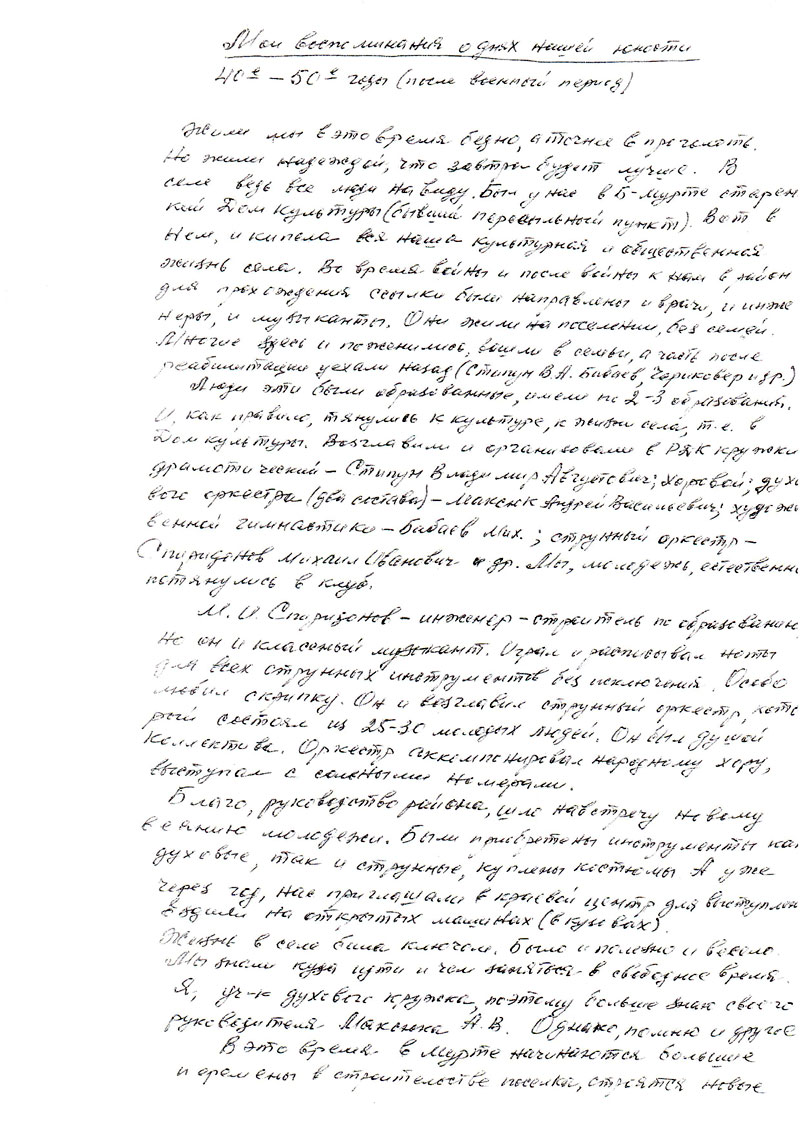 Мои воспоминания о днях нашей юности
40е – 50е годы (после военный период)
Жили мы в это время бедно, а точнее в проголать.
Но жили надеждой, что завтра будет лучше. В
селе ведь все люди на виду. Был у нас в Б-Мурте старень
кий Дом культуры (бывший пересыльный пункт). Вот в
нем, и кипела вся наша культурная и общественная
жизнь села. Во время войны и после войны к нам в район
для прохождения ссылки были направлены и врачи, и инже
неры, и музыканты. Они жили на поселении, без семей.
Многие здесь и поженились, вошли в семьи, а часть после
реабилитации уехали назад (Стипун В.А. Бабаев, Чариковер и др.)
Люди эти были образованные, имели по 2-3 образования.
И, как правило, тянулись к культуре, к жизни села, т.е. в
Дом культуры. Возглавили и организовали в РДК кружки
драмотический – Стипун Владимир Августович; хоровой; духо
вого оркестра (два состава) – Максюк Андрей Васильевич; художе
венной гимнастики – Бабаев Мих.; струнный оркестр –
Спиридонов Михаил Иванович и др. Мы, молодежь, естественно
потянулись в клуб.
М. И. Спиридонов – инженер-строитель по образованию,
но он и классный музыкант. Играл и расписывал ноты
для всех струнных инструментов без исключения. Особо
любил скрипку. Он и возглавил струнный оркестр, кото
рый состоял из 25-30 молодых людей. Он был душой
коллектива. Оркестр аккомпонировал народному хору,
выступал с сольными номерами.
Благо, руководство района, шло навстречу новому
веянию молодежи. Были приобретены инструменты как
духовые, так и струнные, куплены костюмы А уже
через год, нас приглашали в краевой центр для выступлен
Ездили на открытых машинах (в кузовах).
Жизнь в селе била ключом. Было и полезно и весело.
Мы знали куда идти и чем заняться в свободное время.
Я, уч-к духового кружка, поэтому больше знаю своего
руководителя Максюка А.В. Однако, помню и другое
В это время в Мурте начинаются большие
перемены в строительстве поселка, строятся новые